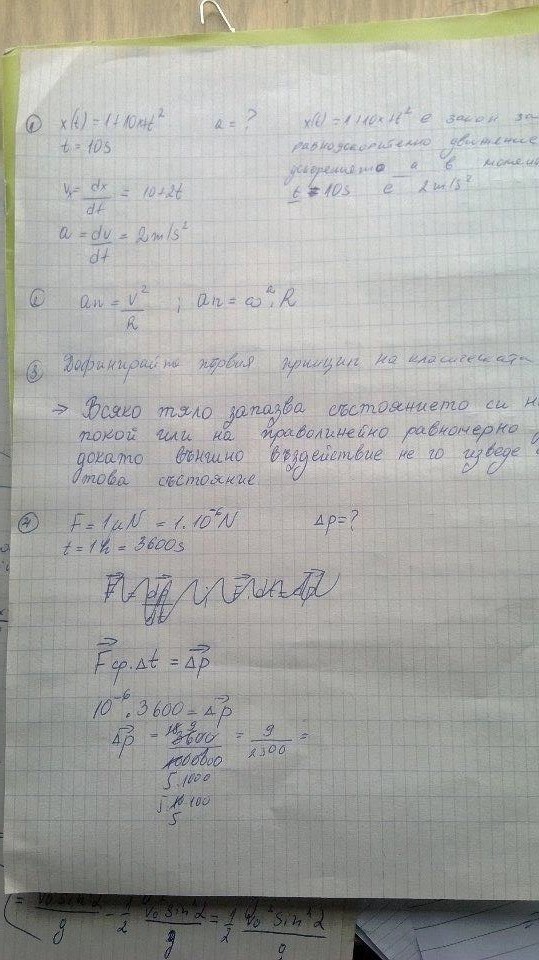 ① x(t) = 1+10t+t² a = ? x(t) = 1+10t+t² е закон за
t = 10s равноускорително движение
ускорението a в момента
Vx = dx/dt = 10+2t t = 10s е 2m/s²
a = dv/dt = 2m/s²
② an = v²/R ; an = ω².R
③ Дефинирайте първия принцип на класическата
→ Всяко тяло запазва състоянието си на
покой или на праволинейно равномерно
докато външно въздействие не го изведе
това състояние.
④ F = 1μN = 1.10⁻⁶N Δp = ?
t = 1h = 3600s
F⃗ср.Δt = Δp⃗
10⁻⁶.3600 = Δp⃗
Δp⃗ = 3600/1000000 = 9/2500 =
5.1000
5.10.100
5
= V₀²sin²α/g - 1/2 V₀²sin²α/g = 1/2 V₀²sin²α/g